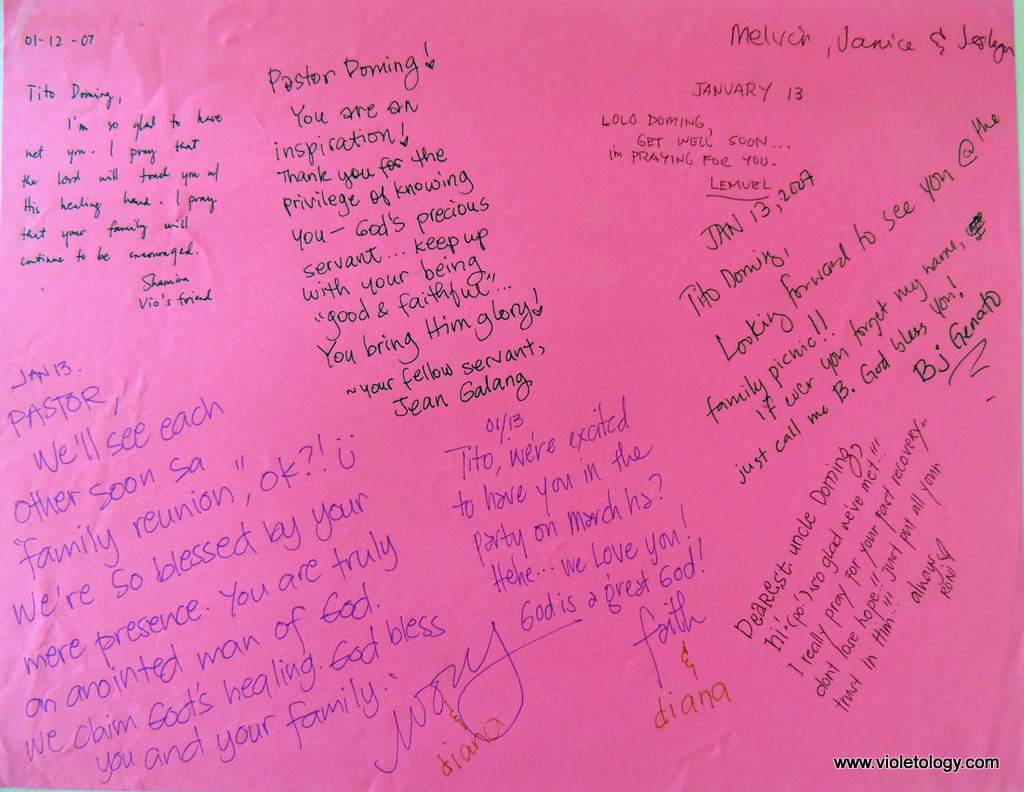 01-12-07
Tito Doming,
I'm so glad to have
met you. I pray that
the Lord will touch you w/
His healing hand. I pray
that your family will
continue to be encouraged.
Vio's friend
Pastor Doming!
You are an
inspiration!
Thank you for the
privilege of knowing
you - God's precious
servant... keep up
with your being
"good & faithful"...
You bring Him glory!
~your fellow servant,
Jean Galang
Melvin, Janice & Jeslyn
JANUARY 13
LOLO DOMING,
GET WELL SOON...
I'm PRAYING FOR YOU.
LEMUEL
JAN 13, 2007
Tito Doming,
Looking forward to see you @ the
family picnic!!
If ever you forget my name,
just call me B. God bless you!
Bj Genato
JAN 13.
PASTOR,
We'll see each
other soon sa
"family reunion", ok?!
We're so blessed by your
mere presence. You are truly
an anointed man of God.
We claim God's healing. God bless
you and your family.
& diana
01/13
Tito, we're excited
to have you in the
party on March ha?
Hehe... we love you!
God is a great God!!
faith
&
diana
Dearest uncle Doming,
Hi (po')! so glad we've met!!!
I really pray for your fast recovery..
dont lose hope!! Just put all your
trust in Him!!!
always,
RONI
www.violetology.com